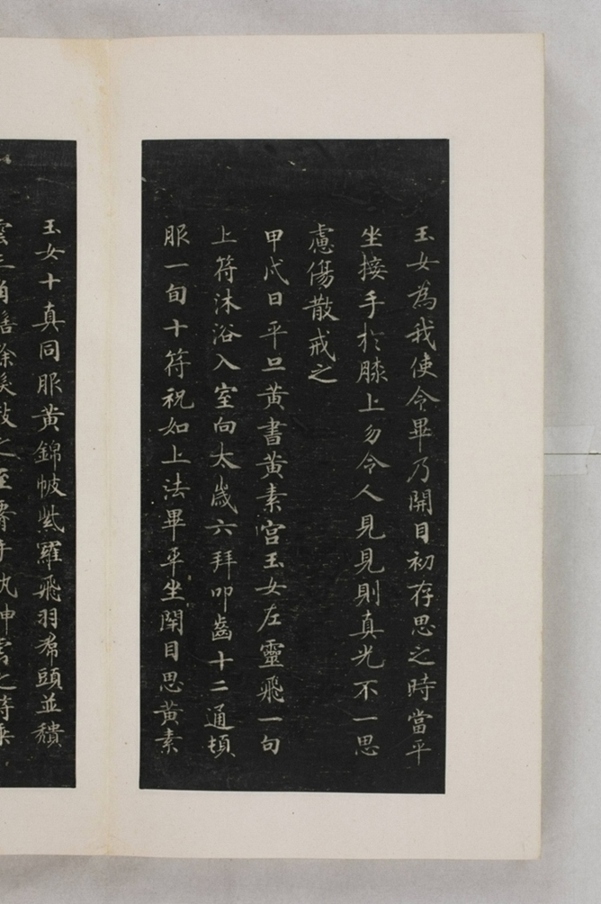 玉女為我使令畢乃開目初存思之時當平
坐接手於膝上勿令人見見則真光不一思
慮傷散戒之
甲戌日平旦黃書黃素宮玉女左靈飛一旬
上符沐浴入室向太歲六拜叩齒十二通頓
服一旬十符祝如上法畢平坐閉目思黃素
玉女十真同服黃錦帔紫羅飛羽帬頭並穨
雲三角髻餘髮散之至